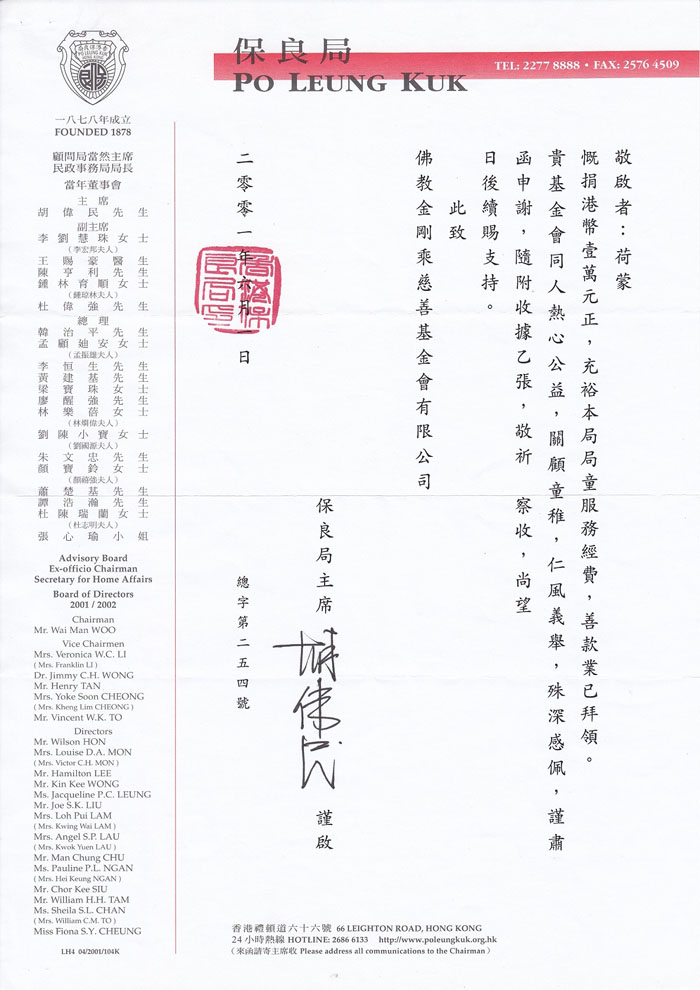 保良局
PO LEUNG KUK
TEL: 2277 8888 • FAX: 2576 4509
PO LEUNG KUK
一八七八年成立
FOUNDED 1878
顧問局當然主席
民政事務局局長
當年董事會
主席
胡偉民先生
副主席
李劉慧珠女士
（李宏邦夫人）
王賜豪醫生
陳亨利先生
鍾林育順女士
（鍾琼林夫人）
杜偉強先生
總理
韓治平先生
孟顧廸安女士
（孟振雄夫人）
李恒生先生
黃建基先生
梁寶珠女士
廖醒強先生
林樂蓓女士
（林烱偉夫人）
劉陳小寶女士
（劉國源夫人）
朱文忠先生
顏寶鈴女士
（顏禧強夫人）
蕭楚基先生
譚浩瀚先生
杜陳瑞蘭女士
（杜志明夫人）
張心瑜小姐
Advisory Board
Ex-officio Chairman
Secretary for Home Affairs
Board of Directors
2001 / 2002
Chairman
Mr. Wai Man WOO
Vice Chairmen
Mrs. Veronica W.C. LI
( Mrs. Franklin LI )
Dr. Jimmy C.H. WONG
Mr. Henry TAN
Mrs. Yoke Soon CHEONG
( Mrs. Kheng Lim CHEONG )
Mr. Vincent W.K. TO
Directors
Mr. Wilson HON
Mrs. Louise D.A. MON
( Mrs. Victor C.H. MON )
Mr. Hamilton LEE
Mr. Kin Kee WONG
Ms. Jacqueline P.C. LEUNG
Mr. Joe S.K. LIU
Mrs. Loh Pui LAM
( Mrs. Kwing Wai LAM )
Mrs. Angel S.P. LAU
( Mrs. Kwok Yuen LAU )
Mr. Man Chung CHU
Ms. Pauline P.L. NGAN
( Mrs. Hei Keung NGAN )
Mr. Chor Kee SIU
Mr. William H.H. TAM
Ms. Sheila S.L. CHAN
( Mrs. William C.M. TO )
Miss Fiona S.Y. CHEUNG
LH4 04/2001/104K
敬啟者：荷蒙
慨捐港幣壹萬元正，充裕本局局童服務經費，善款業已拜領。
貴基金會同人熱心公益，關顧童稚，仁風義舉，殊深感佩，謹肅
函申謝，隨附收據乙張，敬祈 察收，尚望
日後續賜支持。
此致
佛教金剛乘慈善基金會有限公司
保良局主席 胡偉民 謹啟
二零零一年六月一日
總字第二五四號
香港禮頓道六十六號 66 LEIGHTON ROAD, HONG KONG
24 小時熱線 HOTLINE: 2686 6133 http://www.poleungkuk.org.hk
（來函請寄主席收 Please address all communications to the Chairman）